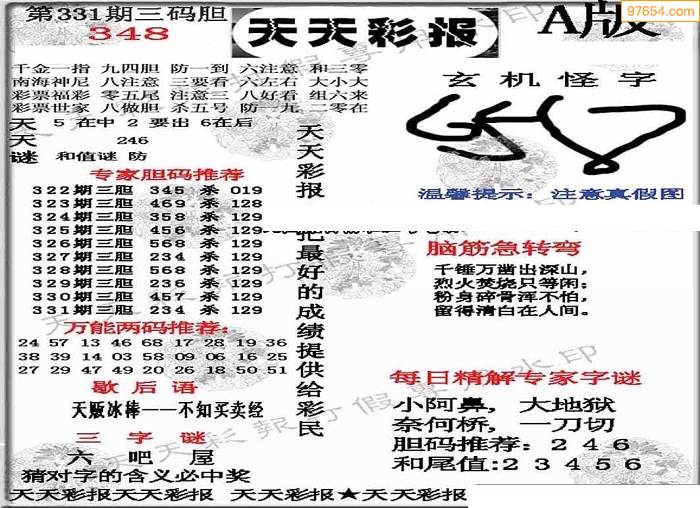 第331期三码胆
348
天天彩报
A版
97654.com
千金一指 九四胆 防一到 六注意 和三零
南海神尼 八注意 三要看 六左右 大小大
彩票福彩 零五尾 注意三 八好看 组六来
彩票世家 八做胆 杀五号 防一九 二零在
天 5 在中 2 要出 6在后
天 246
谜 和值谜 防
专家胆码推荐
322期三胆 345 杀 019
323期三胆 469 杀 128
324期三胆 358 杀 129
325期三胆 456 杀 129
326期三胆 568 杀 129
327期三胆 234 杀 129
328期三胆 568 杀 129
329期三胆 236 杀 129
330期三胆 457 杀 129
331期三胆 234 杀 129
万能两码推荐:
24 57 13 46 68 17 28 19 36
38 39 14 03 58 09 06 16 25
27 29 47 49 20 26 18 50 51
歇后语
天贩冰棒——不知买卖经
三字谜
六 吧 屋
猜对字的含义必中奖
天天彩报
把最好的成绩提供给彩民
玄机怪字
温馨提示: 注意真假图
脑筋急转弯
千锤万凿出深山,
烈火焚烧只等闲;
粉身碎骨浑不怕,
留得清白在人间。
每日精解专家字谜
小阿鼻, 大地狱
奈何桥, 一刀切
胆码推荐: 2 4 6
和尾值:2 3 4 5 6
天天彩报天天彩报 天天彩报★天天彩报